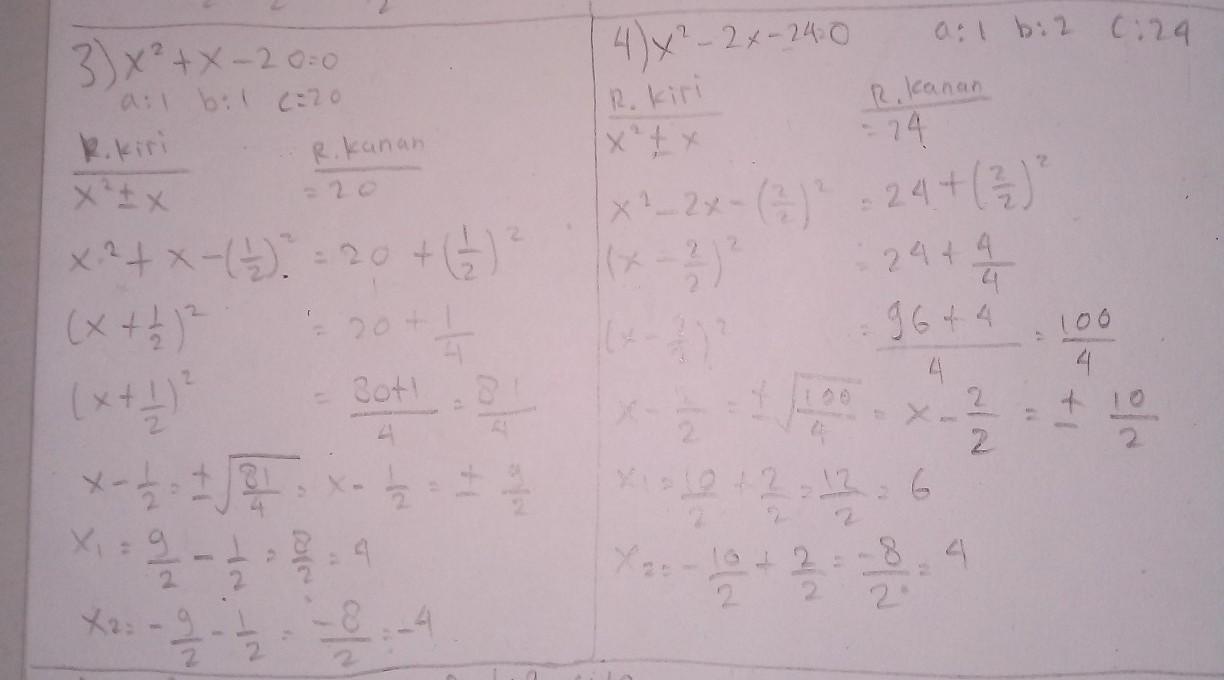 3) x² + x - 20=0
a:1 b:1 c=20
R.kiri R.kanan
x² ± x = 20
x² + x - (1/2)² = 20 + (1/2)²
(x + 1/2)² = 20 + 1/4
(x + 1/2)² = 80+1/4 = 81/4
x - 1/2 = ± √81/4 = x - 1/2 = ± 9/2
x₁ = 9/2 - 1/2 = 8/2 = 4
x₂ = - 9/2 - 1/2 = -8/2 = -4
4) x² - 2x - 24=0 a:1 b:2 c:24
R.kiri R.kanan
x² ± x = 24
x² - 2x - (2/2)² = 24 + (2/2)²
(x - 2/2)² = 24 + 4/4
(x - 2/2)² = 96 + 4/4 = 100/4
x - 2/2 = ± √100/4 = x - 2/2 = ± 10/2
x₁ = 10/2 + 2/2 = 12/2 = 6
x₂ = - 10/2 + 2/2 = -8/2 = 4